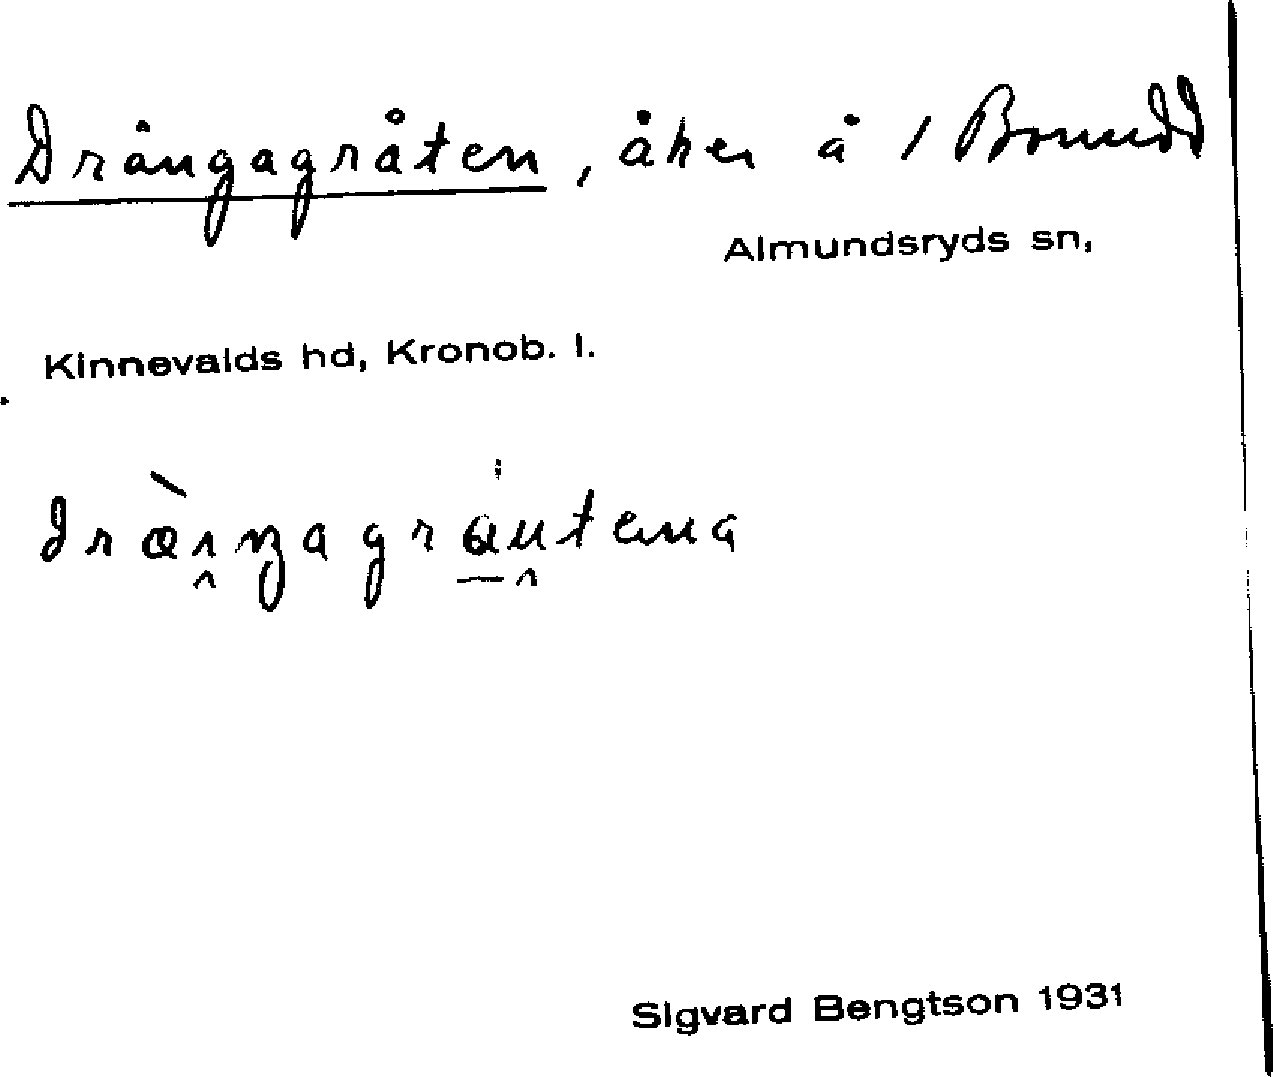 Drängagråten, åker å 1
Almundsryds sn,
Kinnevalds hd, Kronob. l.
Sigvard Bengtson 1931